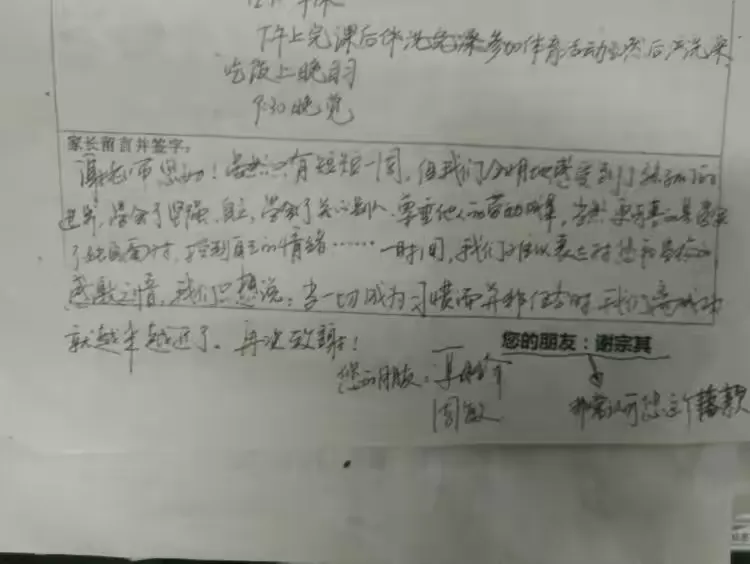 下午上完课后休洗完澡参加体育活动然后洗澡
吃饭上晚习
9:30晚觉
家长留言并签字:
谢老师您好！虽然只有短短一周，但我们分明地感受到了孩子们的
进步，学会了坚强、自立，学会了关心别人、尊重他人的劳动成果，当然更可贵的是学会
了如何面对、控制自己的情绪……一时间，我们难以表达对您和学校的
感激之情，我们只想说：当一切成为习惯而并非任务时 我们离成功
就越来越近了。再次致谢！
您的朋友：谢宗其
您的朋友：
周敏
非常认可您这个落款